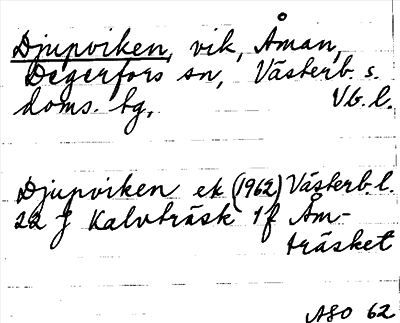 Djupviken, vik, Åman,
Degerfors sn, Västerb. s.
doms. tg, Vb. l.
Djupviken ek (1962) Västerb. l.
22 J Kalvträsk 1f Åm-
träsket
ASO 62